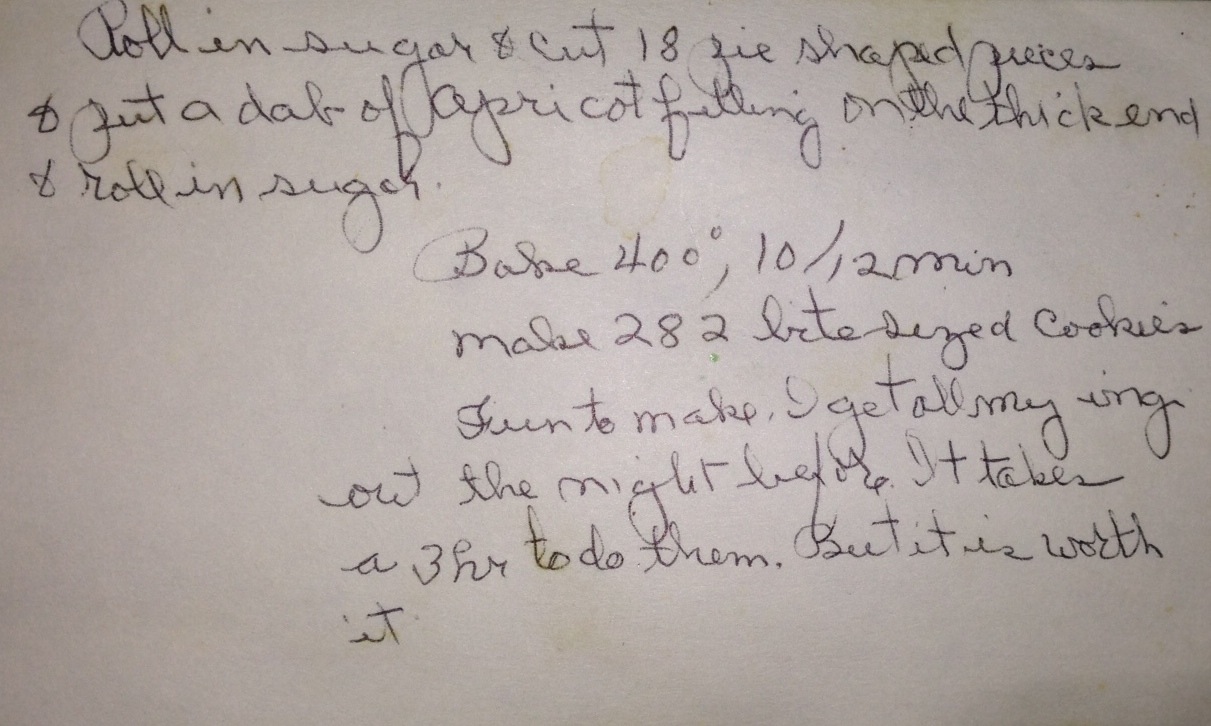 Roll in sugar & cut 18 pie shaped pieces
& put a dab of apricot filling on the thick end
& roll in sugar.
Bake 400°, 10/12 min
make 282 bite sized cookies
Fun to make. I get all my ing
out the night before. It takes
a 3 hr to do them. But it is worth
it